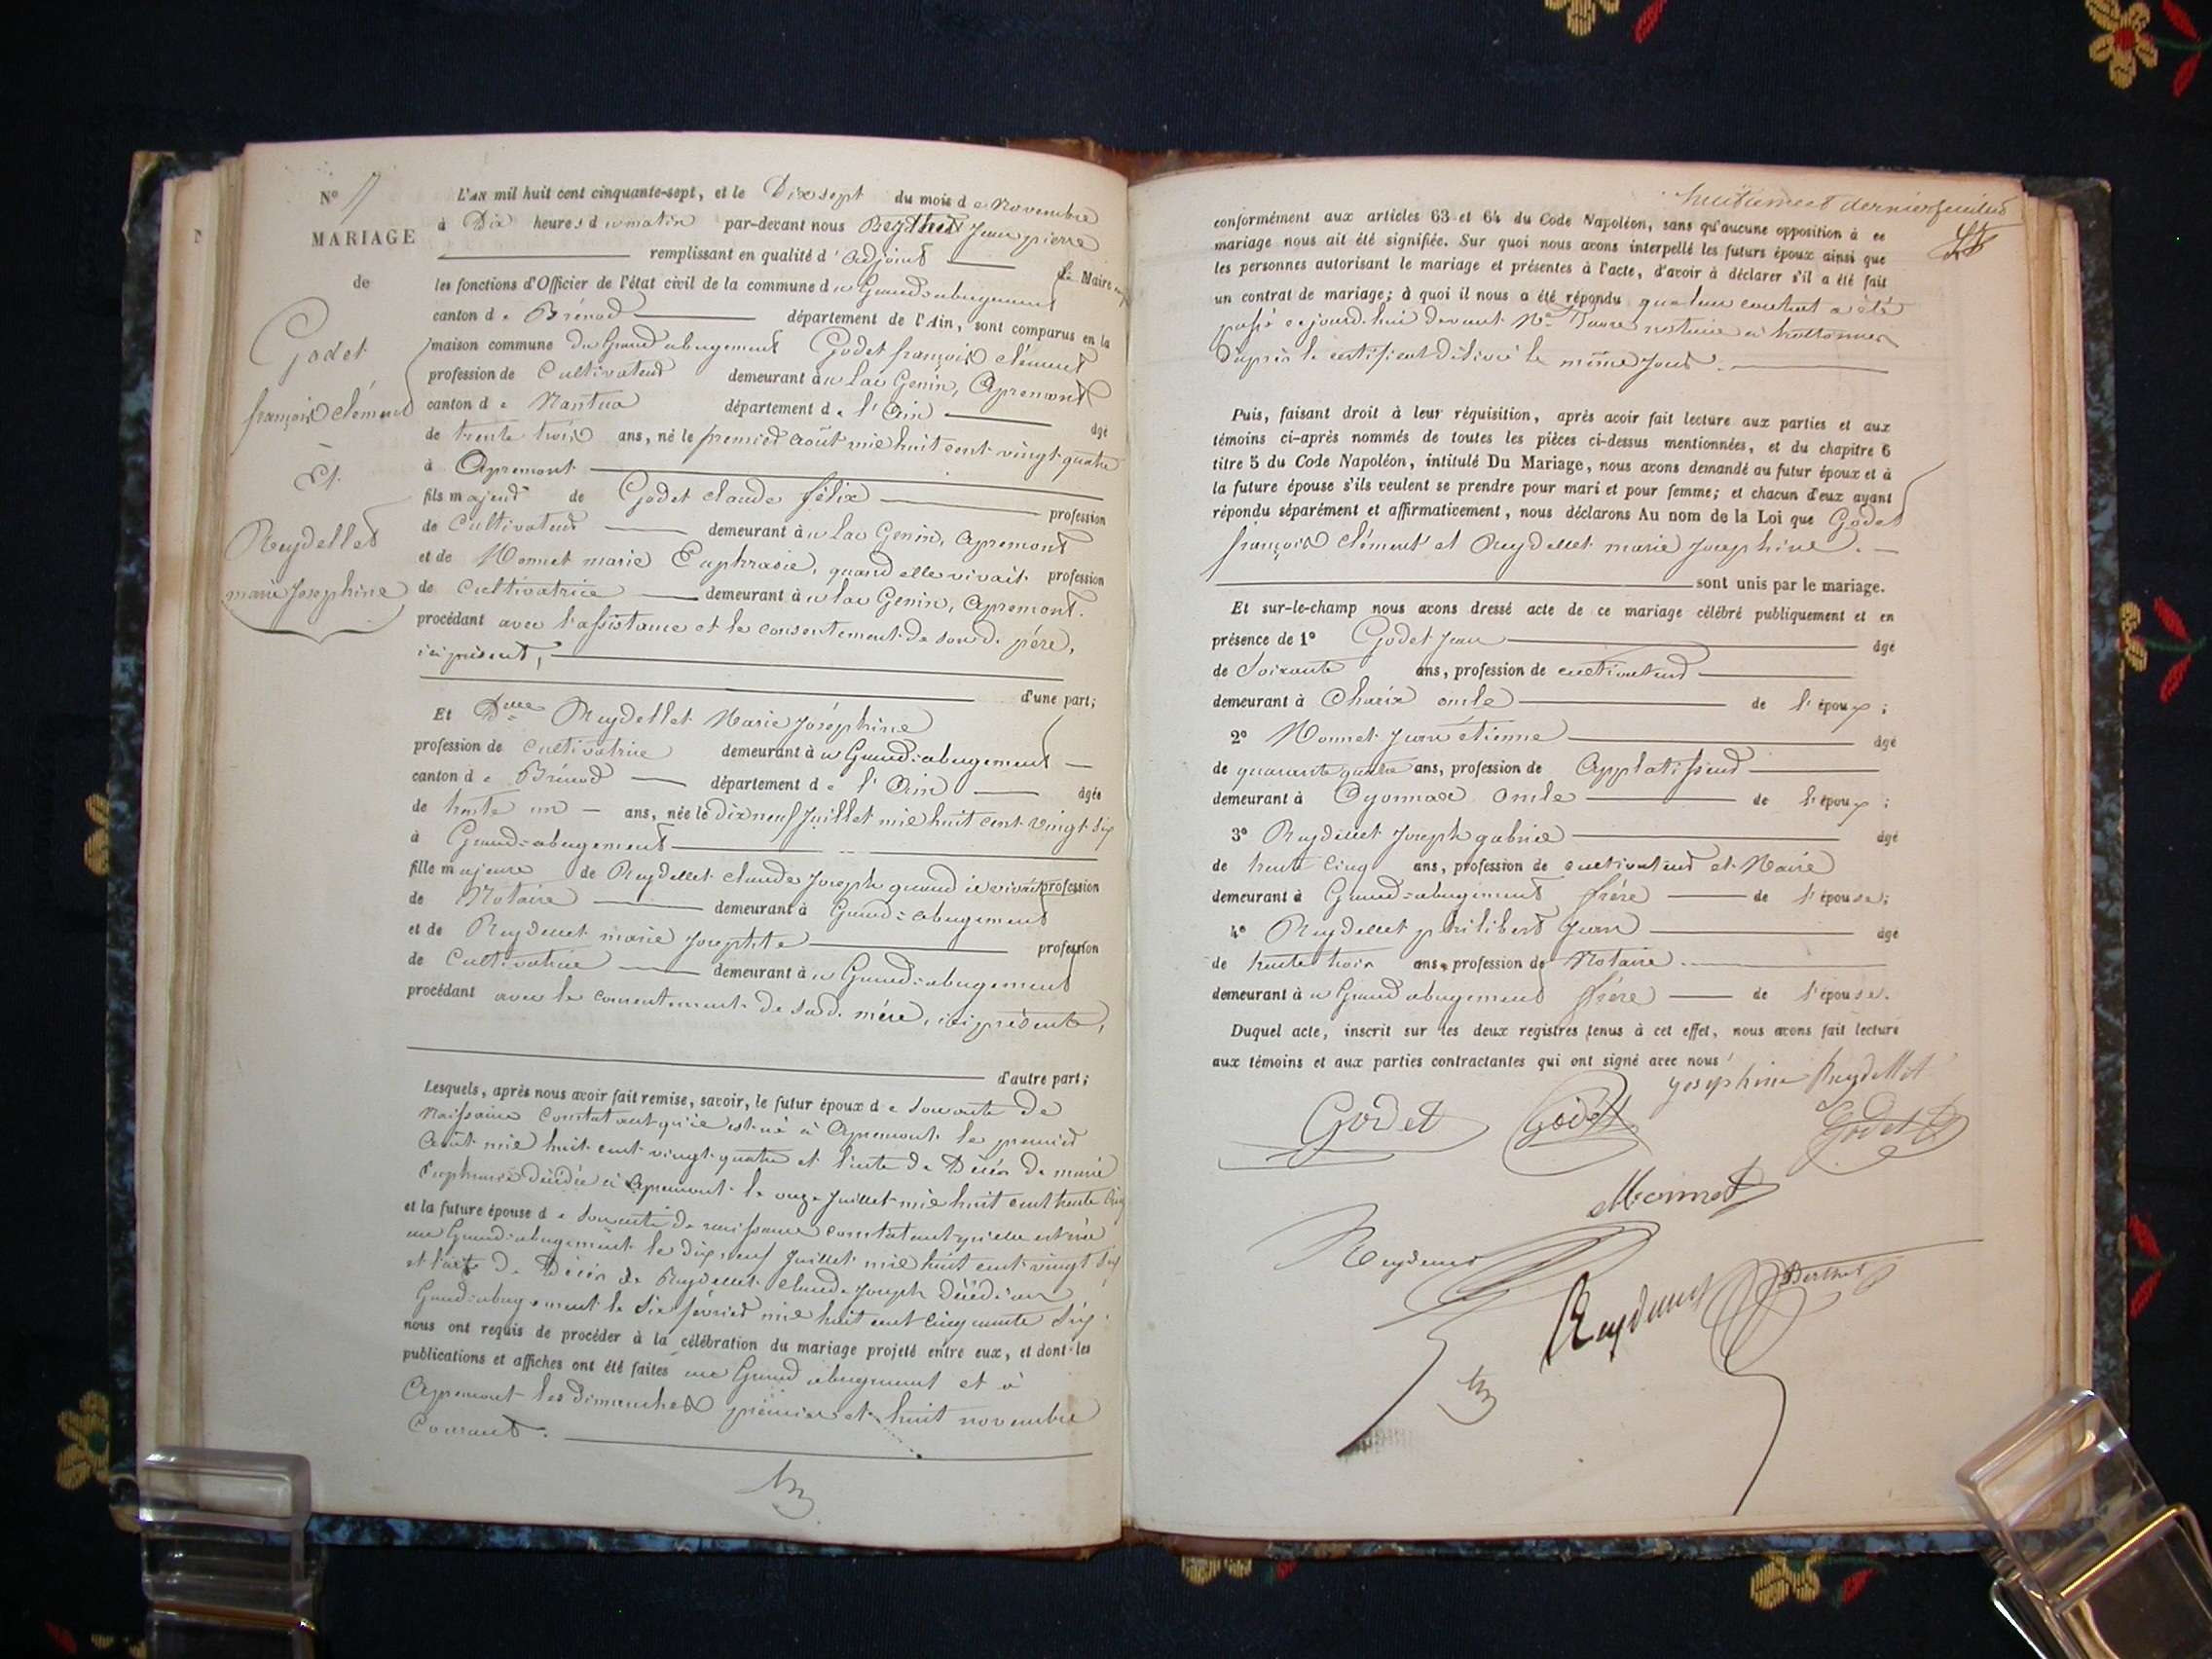 N° 11
MARIAGE
de
Godet
françois clément
Et
Reydellet
marie Josephine
L'AN mil huit cent cinquante-sept, et le Dix sept du mois de Novembre
à Dix heures du matin par-devant nous Jean pierre
remplissant en qualité d'adjoint Le Maire
les fonctions d'Officier de l'état civil de la commune du Grand-abergement
canton de Brénod département de l'Ain, sont comparus en la
maison commune du Grand abergement Godet françois clément
profession de Cultivateur demeurant au Lac Genin, Apremont
canton de Nantua département de l'Ain âgé
de trente trois ans, né le premier août mil huit cent vingt quatre
à Apremont
fils majeur de Godet claude félix profession
de Cultivateur demeurant au Lac Genin, Apremont
et de Monnet marie Euphrasie, quand elle vivait profession
de Cultivatrice demeurant au Lac Genin, Apremont.
procédant avec l'assistance et le consentement de sond. père,
ici présent,
d'une part;
Et Dlle Reydellet Marie Joséphine
profession de Cultivatrice demeurant au Grand-abergement
canton de Brénod département de l'Ain âgée
de trente un ans, née le dix neuf Juillet mil huit cent vingt six
à Grand-abergement
fille majeure de Reydellet claude Joseph quand il vivait profession
de Notaire demeurant à Grand-abergement
et de Reydellet marie Josephte profession
de Cultivatrice demeurant au Grand-abergement
procédant avec le consentement de sad. mère, ici présente,
d'autre part;
Lesquels, après nous avoir fait remise, savoir, le futur époux de son acte de
Naissance constatant qu'il est né à Apremont le premier
Août mil huit cent vingt quatre et l'acte de Décès de marie
Euphrasie décédée à Apremont le onze Juillet mil huit cent trente cinq
et la future épouse de son acte de naissance constatant qu'elle est née
au Grand-abergement le dix neuf Juillet mil huit cent vingt six
et l'acte de Décès de Reydellet Claude Joseph décédé au
Grand-abergement le six février mil huit cent cinquante six
nous ont requis de procéder à la célébration du mariage projeté entre eux, et dont les
publications et affiches ont été faites au Grand abergement et à
Apremont les dimanches premier et huit novembre
Courant.
conformément aux articles 63 et 64 du Code Napoléon, sans qu'aucune opposition à ce
mariage nous ait été signifiée. Sur quoi nous avons interpellé les futurs époux ainsi que
les personnes autorisant le mariage et présentes à l'acte, d'avoir à déclarer s'il a été fait
un contrat de mariage; à quoi il nous a été répondu que leur contrat a été
passé ce jourd'hui devant Me notaire à hottonnes
d'après le certificat délivré le même jour.
Puis, faisant droit à leur réquisition, après avoir fait lecture aux parties et aux
témoins ci-après nommés de toutes les pièces ci-dessus mentionnées, et du chapitre 6
titre 5 du Code Napoléon, intitulé Du Mariage, nous avons demandé au futur époux et à
la future épouse s'ils veulent se prendre pour mari et pour femme; et chacun d'eux ayant
répondu séparément et affirmativement, nous déclarons Au nom de la Loi que Godet
françois Clément et Reydellet marie Josephine.
sont unis par le mariage.
Et sur-le-champ nous avons dressé acte de ce mariage célébré publiquement et en
présence de 1° Godet Jean âgé
de Soixante ans, profession de cultivateur
demeurant à Charix oncle de l'époux;
2° Monnet Jean étienne âgé
de quarante quatre ans, profession de Applatisseur
demeurant à Oyonnax oncle de l'époux;
3° Reydellet Joseph gabriel âgé
de trente cinq ans, profession de cultivateur et Maire
demeurant à Grand-abergement frère de l'épouse;
4° Reydellet philibert Jean âgé
de trente trois ans, profession de Notaire
demeurant au Grand abergement frère de l'épouse.
Duquel acte, inscrit sur les deux registres tenus à cet effet, nous avons fait lecture
aux témoins et aux parties contractantes qui ont signé avec nous
Josephine Reydellet
Godet Godet Godet
Monnet
Reydellet
Reydellet Berthet